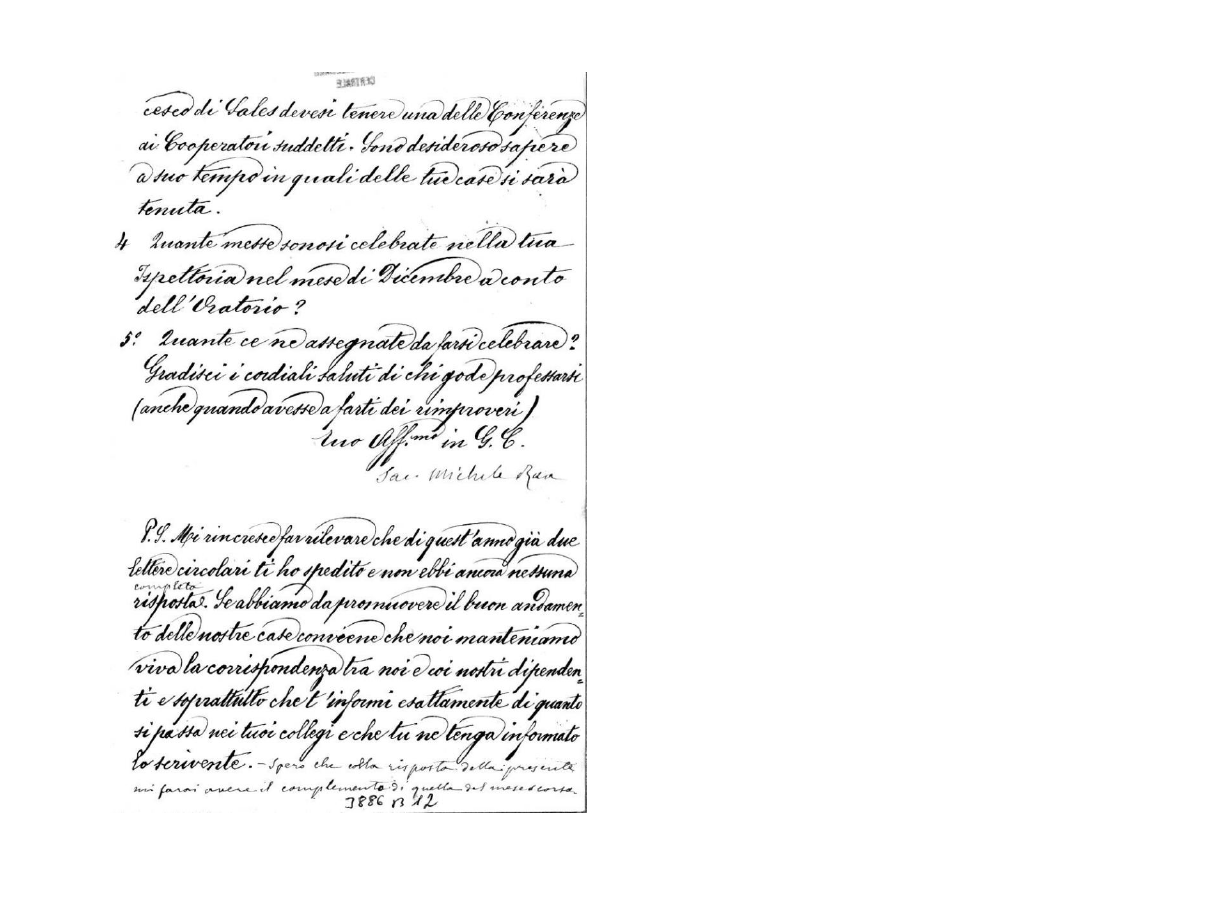 CENTRALE
cesco di Sales devesi tenere una delle Conferenze
ai Cooperatori suddetti. Sono desideroso sapere
a suo tempo in quali delle tue case si sarà
tenuta.
4 Quante messe sonosi celebrate nella tua
Ispettoria nel mese di Dicembre a conto
dell'Oratorio?
5.° Quante ce ne assegnate da farsi celebrare?
Gradisci i cordiali saluti di chi gode professarsi
(anche quando avesse a farti dei rimproveri)
Tuo Aff.mo in G. C.
Sac. Michele Rua
P.S. Mi rincresce far rilevare che di quest'anno già due
lettere circolari ti ho spedito e non ebbi ancora nessuna
completa
risposta. Se abbiamo da promuovere il buon andamen=
to delle nostre case conviene che noi manteniamo
viva la corrispondenza tra noi e coi nostri dipenden=
ti e soprattutto che t'informi esattamente di quanto
si passa nei tuoi collegi e che tu ne tenga informato
lo scrivente. – Spero che colla risposta della presente
mi farai avere il complemento di quella del mese scorso.
3886 B 12